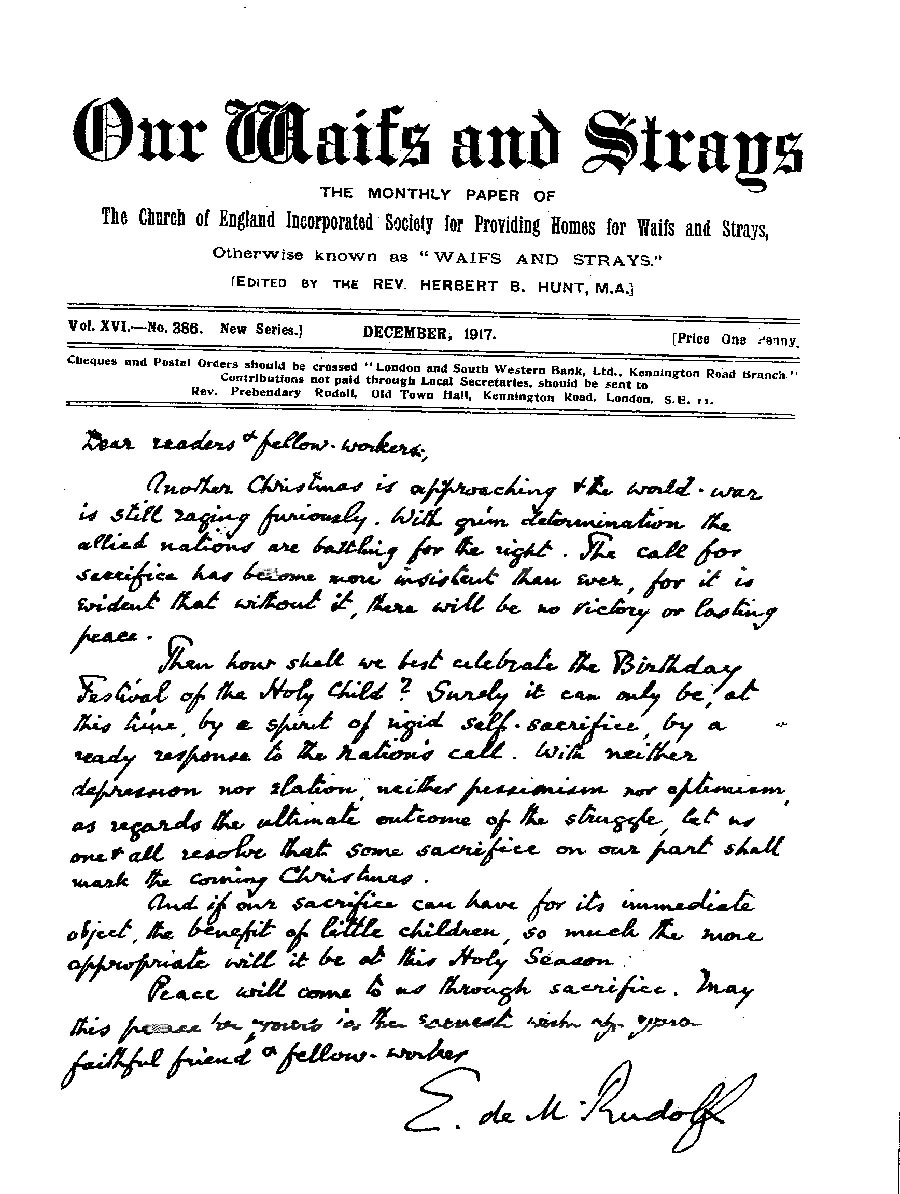 Our Waifs and Strays
THE MONTHLY PAPER OF
The Church of England Incorporated Society for Providing Homes for Waifs and Strays,
Otherwise known as "WAIFS AND STRAYS."
[EDITED BY THE REV. HERBERT B. HUNT, M.A.]
Vol. XVI.—No. 386. New Series.] DECEMBER, 1917. [Price One Penny.
Cheques and Postal Orders should be crossed "London and South Western Bank, Ltd., Kennington Road Branch."
Contributions not paid through Local Secretaries, should be sent to
Rev. Prebendary Rudolf, Old Town Hall, Kennington Road, London, S.E. 11.
Dear readers & fellow-workers,
Another Christmas is approaching & the world-war
is still raging furiously. With grim determination the
allied nations are battling for the right. The call for
sacrifice has become more insistent than ever, for it is
evident that without it, there will be no victory or lasting
peace.
Then how shall we best celebrate the Birthday
Festival of the Holy Child? Surely it can only be, at
this time, by a spirit of rigid self-sacrifice, by a
ready response to the Nation's call. With neither
depression nor elation, neither pessimism nor optimism,
as regards the ultimate outcome of the struggle, let us
one & all resolve that some sacrifice on our part shall
mark the coming Christmas.
And if our sacrifice can have for its immediate
object, the benefit of little children, so much the more
appropriate will it be at this Holy Season.
Peace will come to us through sacrifice. May
this peace be yours is the earnest wish of your
faithful friend & fellow-worker
E. de M. Rudolf